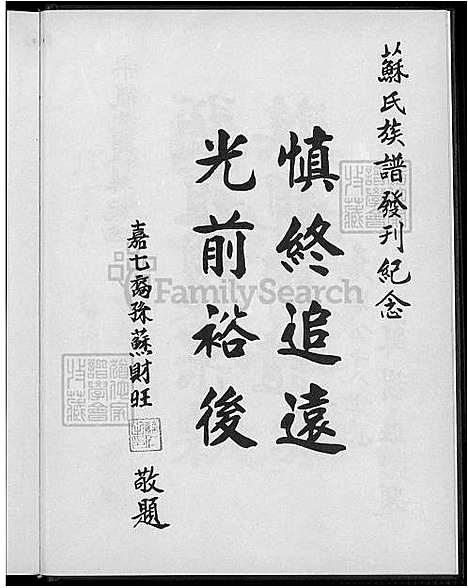 蘇氏族譜發刊紀念
慎終追遠
光前裕後
嘉七裔孫蘇財旺
敬題
FamilySearch